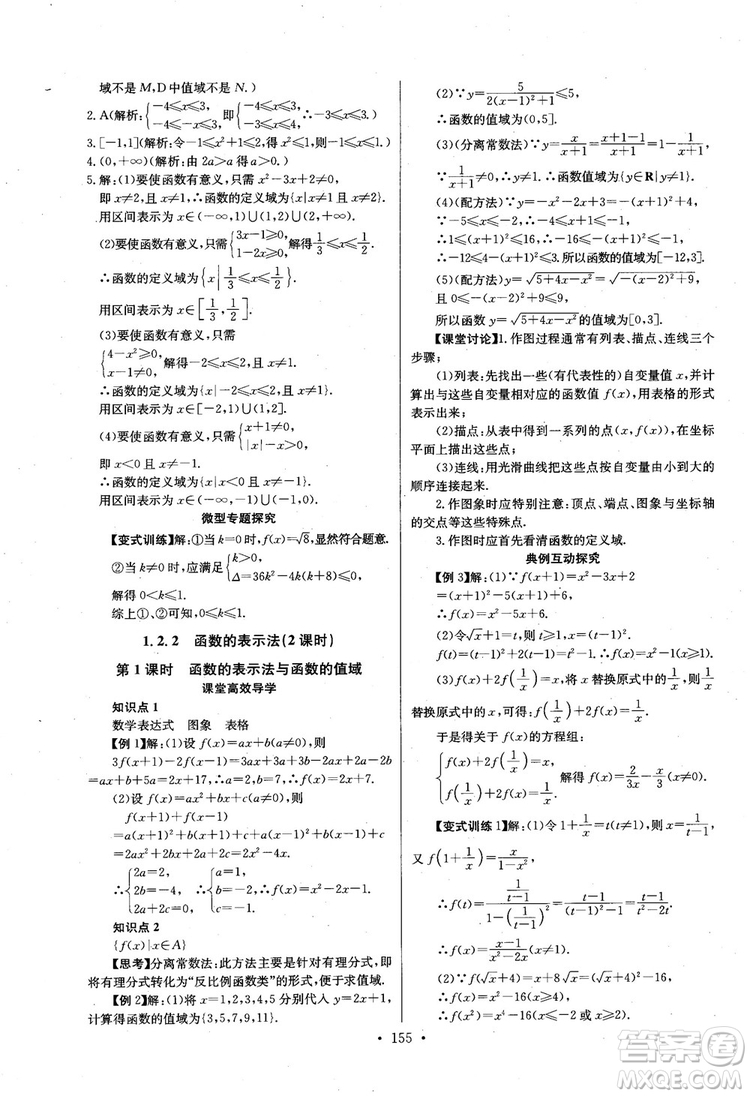 域不是 M,D 中值域不是 N.)
2. A(解析:{−4≤x≤3, −4≤−x≤3, 即{−4≤x≤3, −3≤x≤4, ∴−3≤x≤3.)
3. [−1,1](解析:令−1≤x²≤1 得−1≤x≤1.)
4. (0,+∞)(解析:由 2a>a 得 a>0.)
5. 解:(1)要使函数有意义,只需 x²−3x+2≠0,
即 x≠1 且 x≠2,故函数的定义域为{x|x≠1 且 x≠2}.
用区间表示为 x∈(−∞,1)∪(1,2)∪(2,+∞).
(2)要使函数有意义,只需{3x−1≥0, 1−2x≥0.
∴函数的定义域为{x|1/3≤x≤1/2}.
用区间表示为 x∈[1/3,1/2].
(3)要使函数有意义,只需
{4−x²≥0, x−1≠0,
∴函数的定义域为{x|−2≤x≤2 且 x≠1}.
用区间表示为 x∈[−2,1)∪(1,2].
(4)要使函数有意义,只需{x+1≠0, |x|−x>0,
即 x<0 且 x≠−1.
∴函数的定义域为{x|x<0 且 x≠−1}.
用区间表示为 x∈(−∞,−1)∪(−1,0).
微型专题探究
【变式训练】解:①当 k=0 时,f(x)=√8,显然符合题意.
②当 k≠0 时,应满足{k>0, Δ=36k²−4k(k+8)≤0,
解得 0<k≤1.
综上①②得 0≤k≤1.
1.2.2 函数的表示法(2 课时)
第 1 课时 函数的表示法与函数的值域
课堂高效导学
知识点 1
数学表达式 图象 表格
【例 1】解:(1)设 f(x)=ax+b(a≠0),则
3f(x+1)−2f(x−1)=3ax+3a+3b−2ax+2a−2b
=ax+b+5a=2x+17.∴a=2,b=7,∴f(x)=2x+7.
(2)设 f(x)=ax²+bx+c(a≠0),则
f(x+1)+f(x−1)
=a(x+1)²+b(x+1)+c+a(x−1)²+b(x−1)+c
=2ax²+2bx+2a+2c=2x²−4x,
∴{2a=2, 2b=−4, 2a+2c=0, ∴{a=1, b=−2, c=−1. ∴f(x)=x²−2x−1.
知识点 2
{f(x)|x∈A}
【思考】分离常数法:此方法主要是针对有理分式,即
将有理分式转化为“反比例函数类”的形式,便于求值域.
【例 2】解:(1)将 x=1,2,3,4,5 分别代入 y=2x+1,
计算得函数的值域为{3,5,7,9,11}.
(2)∵y=5/(2(x−1)²+1)≤5,
∴函数的值域为(0,5].
(3)(分离常数法)∵y=x/(x+1)=(x+1−1)/(x+1)=1−1/(x+1),
∵1/(x+1)≠0,∴函数值域为{y∈R|y≠1}.
(4)(配方法)∵y=−x²−2x+3=−(x+1)²+4,
∵−5≤x≤−2,∴−4≤x+1≤−1.
∴1≤(x+1)²≤16,∴−16≤−(x+1)²≤−1,
∴−12≤4−(x+1)²≤3.所以函数的值域为[−12,3].
(5)(配方法)∵y=√(5+4x−x²)=√(−(x−2)²+9),
且 0≤−(x−2)²+9≤9,
所以函数 y=√(5+4x−x²) 的值域为[0,3].
【课堂讨论】1. 作图过程通常有列表、描点、连线三个
步骤:
(1)列表:先找出一些(有代表性的)自变量值 x,并计
算出与这些自变量相对应的函数值 f(x),用表格的形式
表示出来;
(2)描点:从表中得到一系列的点(x,f(x)),在坐标
平面上描出这些点;
(3)连线:用光滑曲线把这些点按自变量由小到大的
顺序连接起来.
2. 作图象时应特别注意:顶点、端点、图象与坐标轴
的交点等这些特殊点.
3. 作图时应首先看清函数的定义域.
典例互动探究
【例 3】解:(1)∵f(x+1)=x²−3x+2
=(x+1)²−5x+1=(x+1)²−5(x+1)+6,
∴f(x)=x²−5x+6.
(2)令√x+1=t,∴t≥1,∴√x=t−1.则
f(t)=(t−1)²+2(t−1)=t²−1,∴f(x)=x²−1(x≥1).
(3)∵f(x)+2f(1/x)=x,将 x 替换原式中的1/x,将1/x
替换原式中的 x,可得 f(1/x)+2f(x)=1/x.
于是得关于 f(x)的方程组:
{f(x)+2f(1/x)=x, f(1/x)+2f(x)=1/x, 解得 f(x)=2/3x−x/3(x≠0).
【变式训练 1】解:(1)令 1+1/x=t(t≠1),则 x=1/(t−1),
又 f(1+1/x)=x/(1−x²),
∴f(t)=(1/(t−1))/(1−(1/(t−1))²)=(t−1)/((t−1)²−1)=(t−1)/(t²−2t),
∴f(x)=(x−1)/(x²−2x)(x≠1).
(2)∵f(x²)=(x²)²−16,
∴f(x)=x²−16(x≥0),
∴f(x²)=x⁴−16(x∈R).
• 155 •
答案圈
MXQE.COM